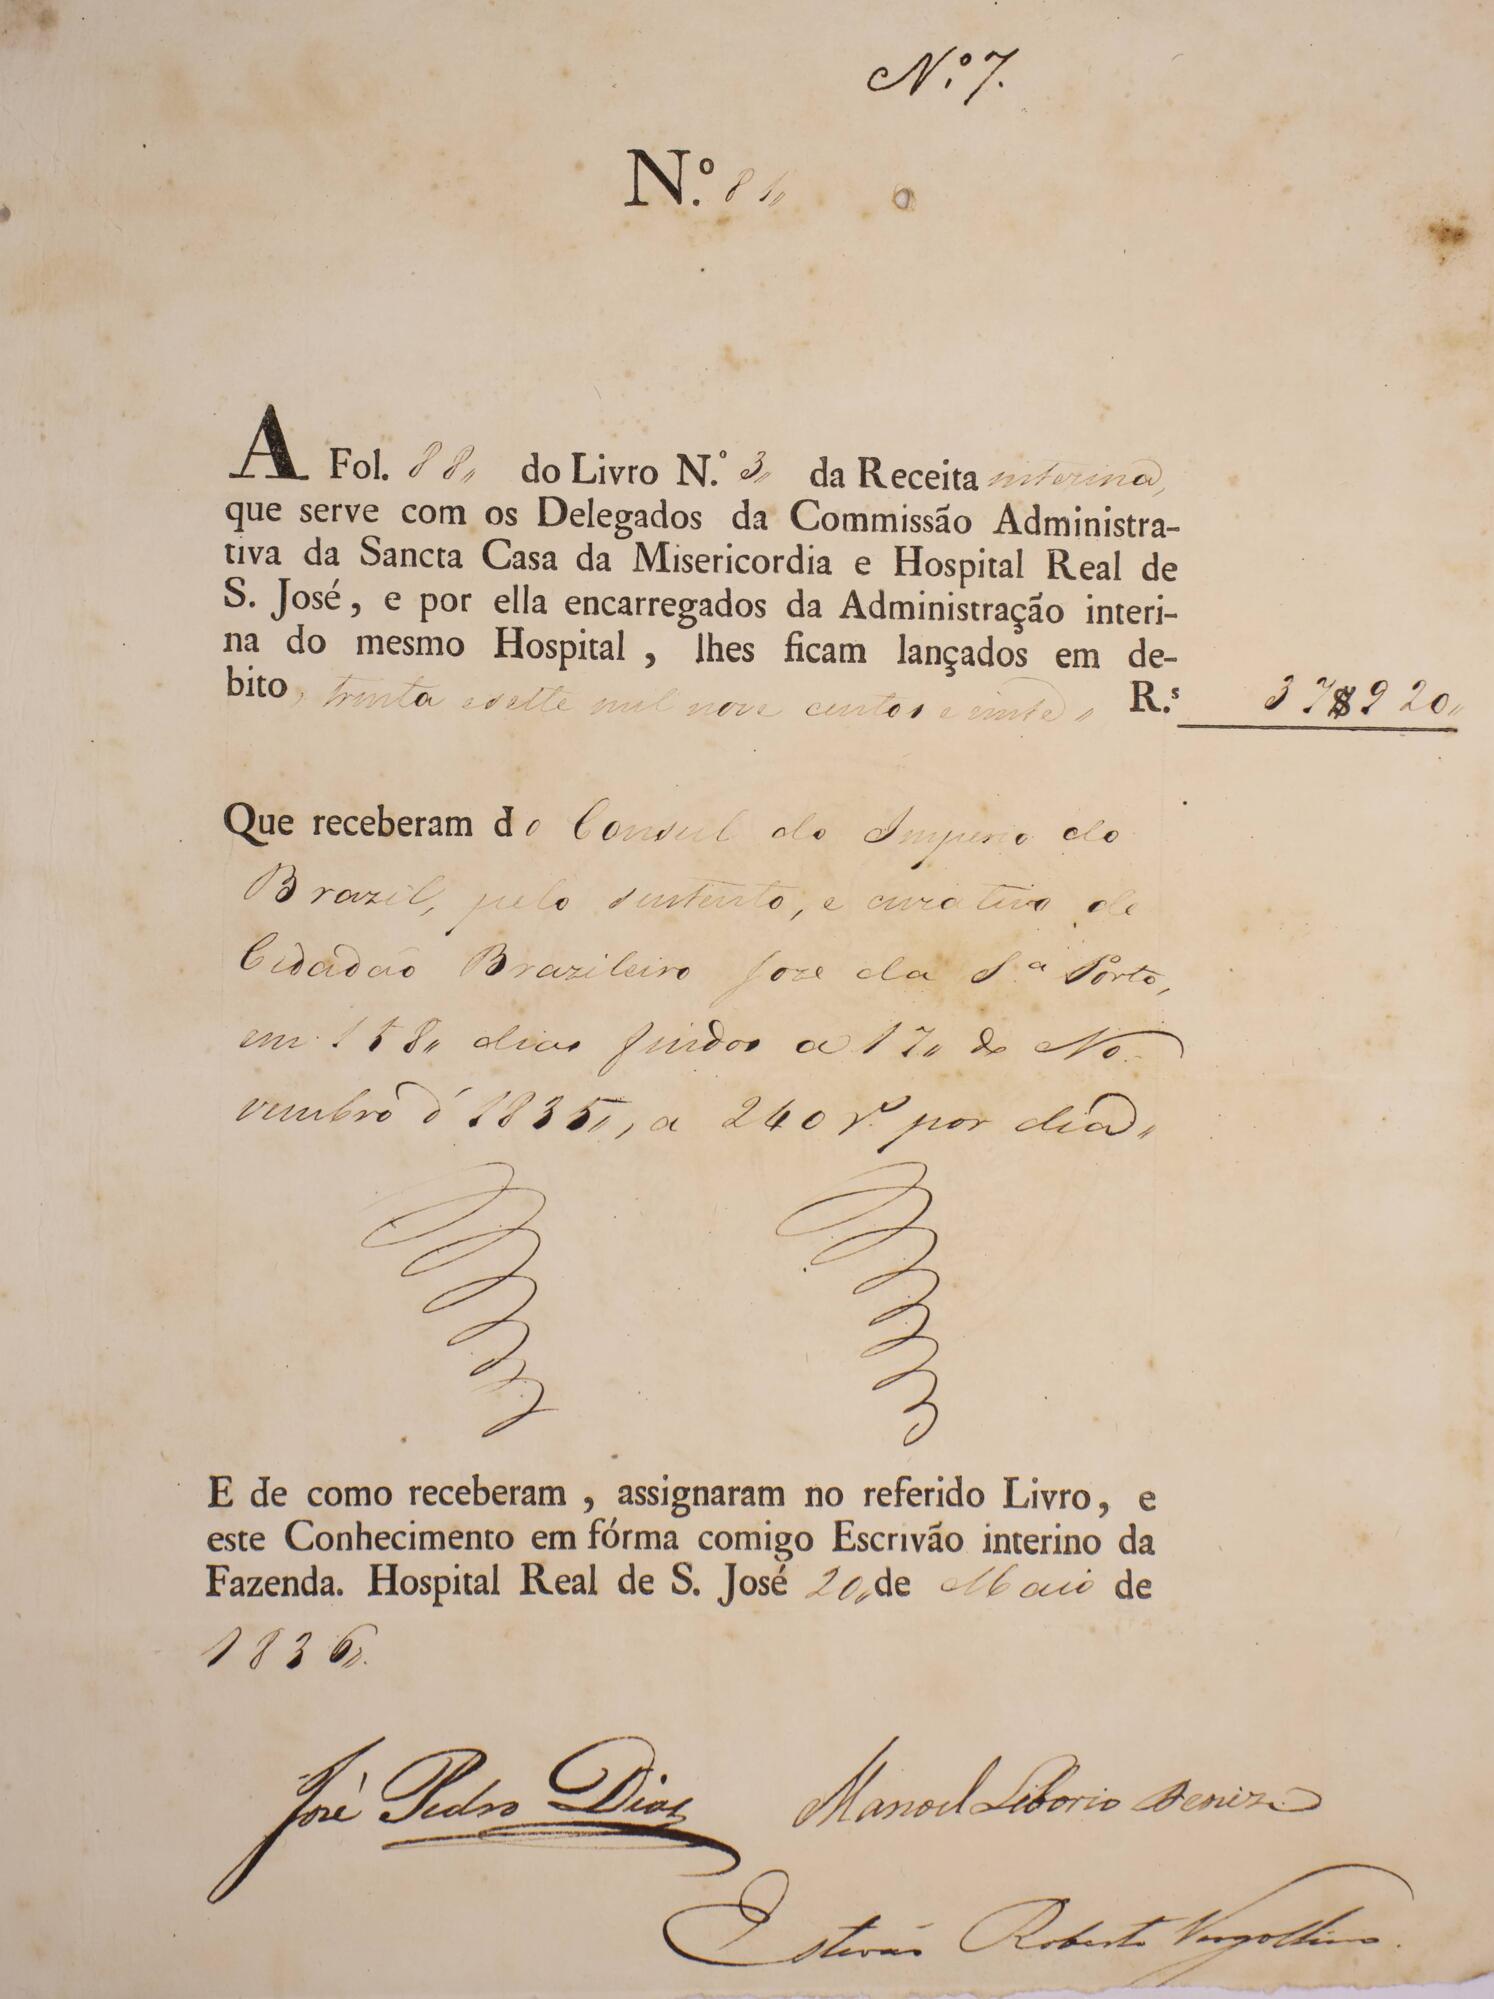 N.º 7.
N.º 81
A Fol. 88 do Livro N.º 3 da Receita interina,
que serve com os Delegados da Commissão Administra-
tiva da Sancta Casa da Misericordia e Hospital Real de
S. José, e por ella encarregados da Administração interi-
na do mesmo Hospital, lhes ficam lançados em de-
bito, trinta e sette mil nove centos e vinte R.s 37$920
Que receberam do Consul do Imperio do
Brazil, pelo sustento, e curativo de
Cidadão Brazileiro Joze da S.a Porto,
em 158 dias findos a 17 de No-
vembro d' 1835, a 240 r.s por dia
E de como receberam, assignaram no referido Livro, e
este Conhecimento em fórma comigo Escrivão interino da
Fazenda. Hospital Real de S. José 20 de Maio de
1836.
José Pedro Dias Manoel Liborio
Estevão Roberto